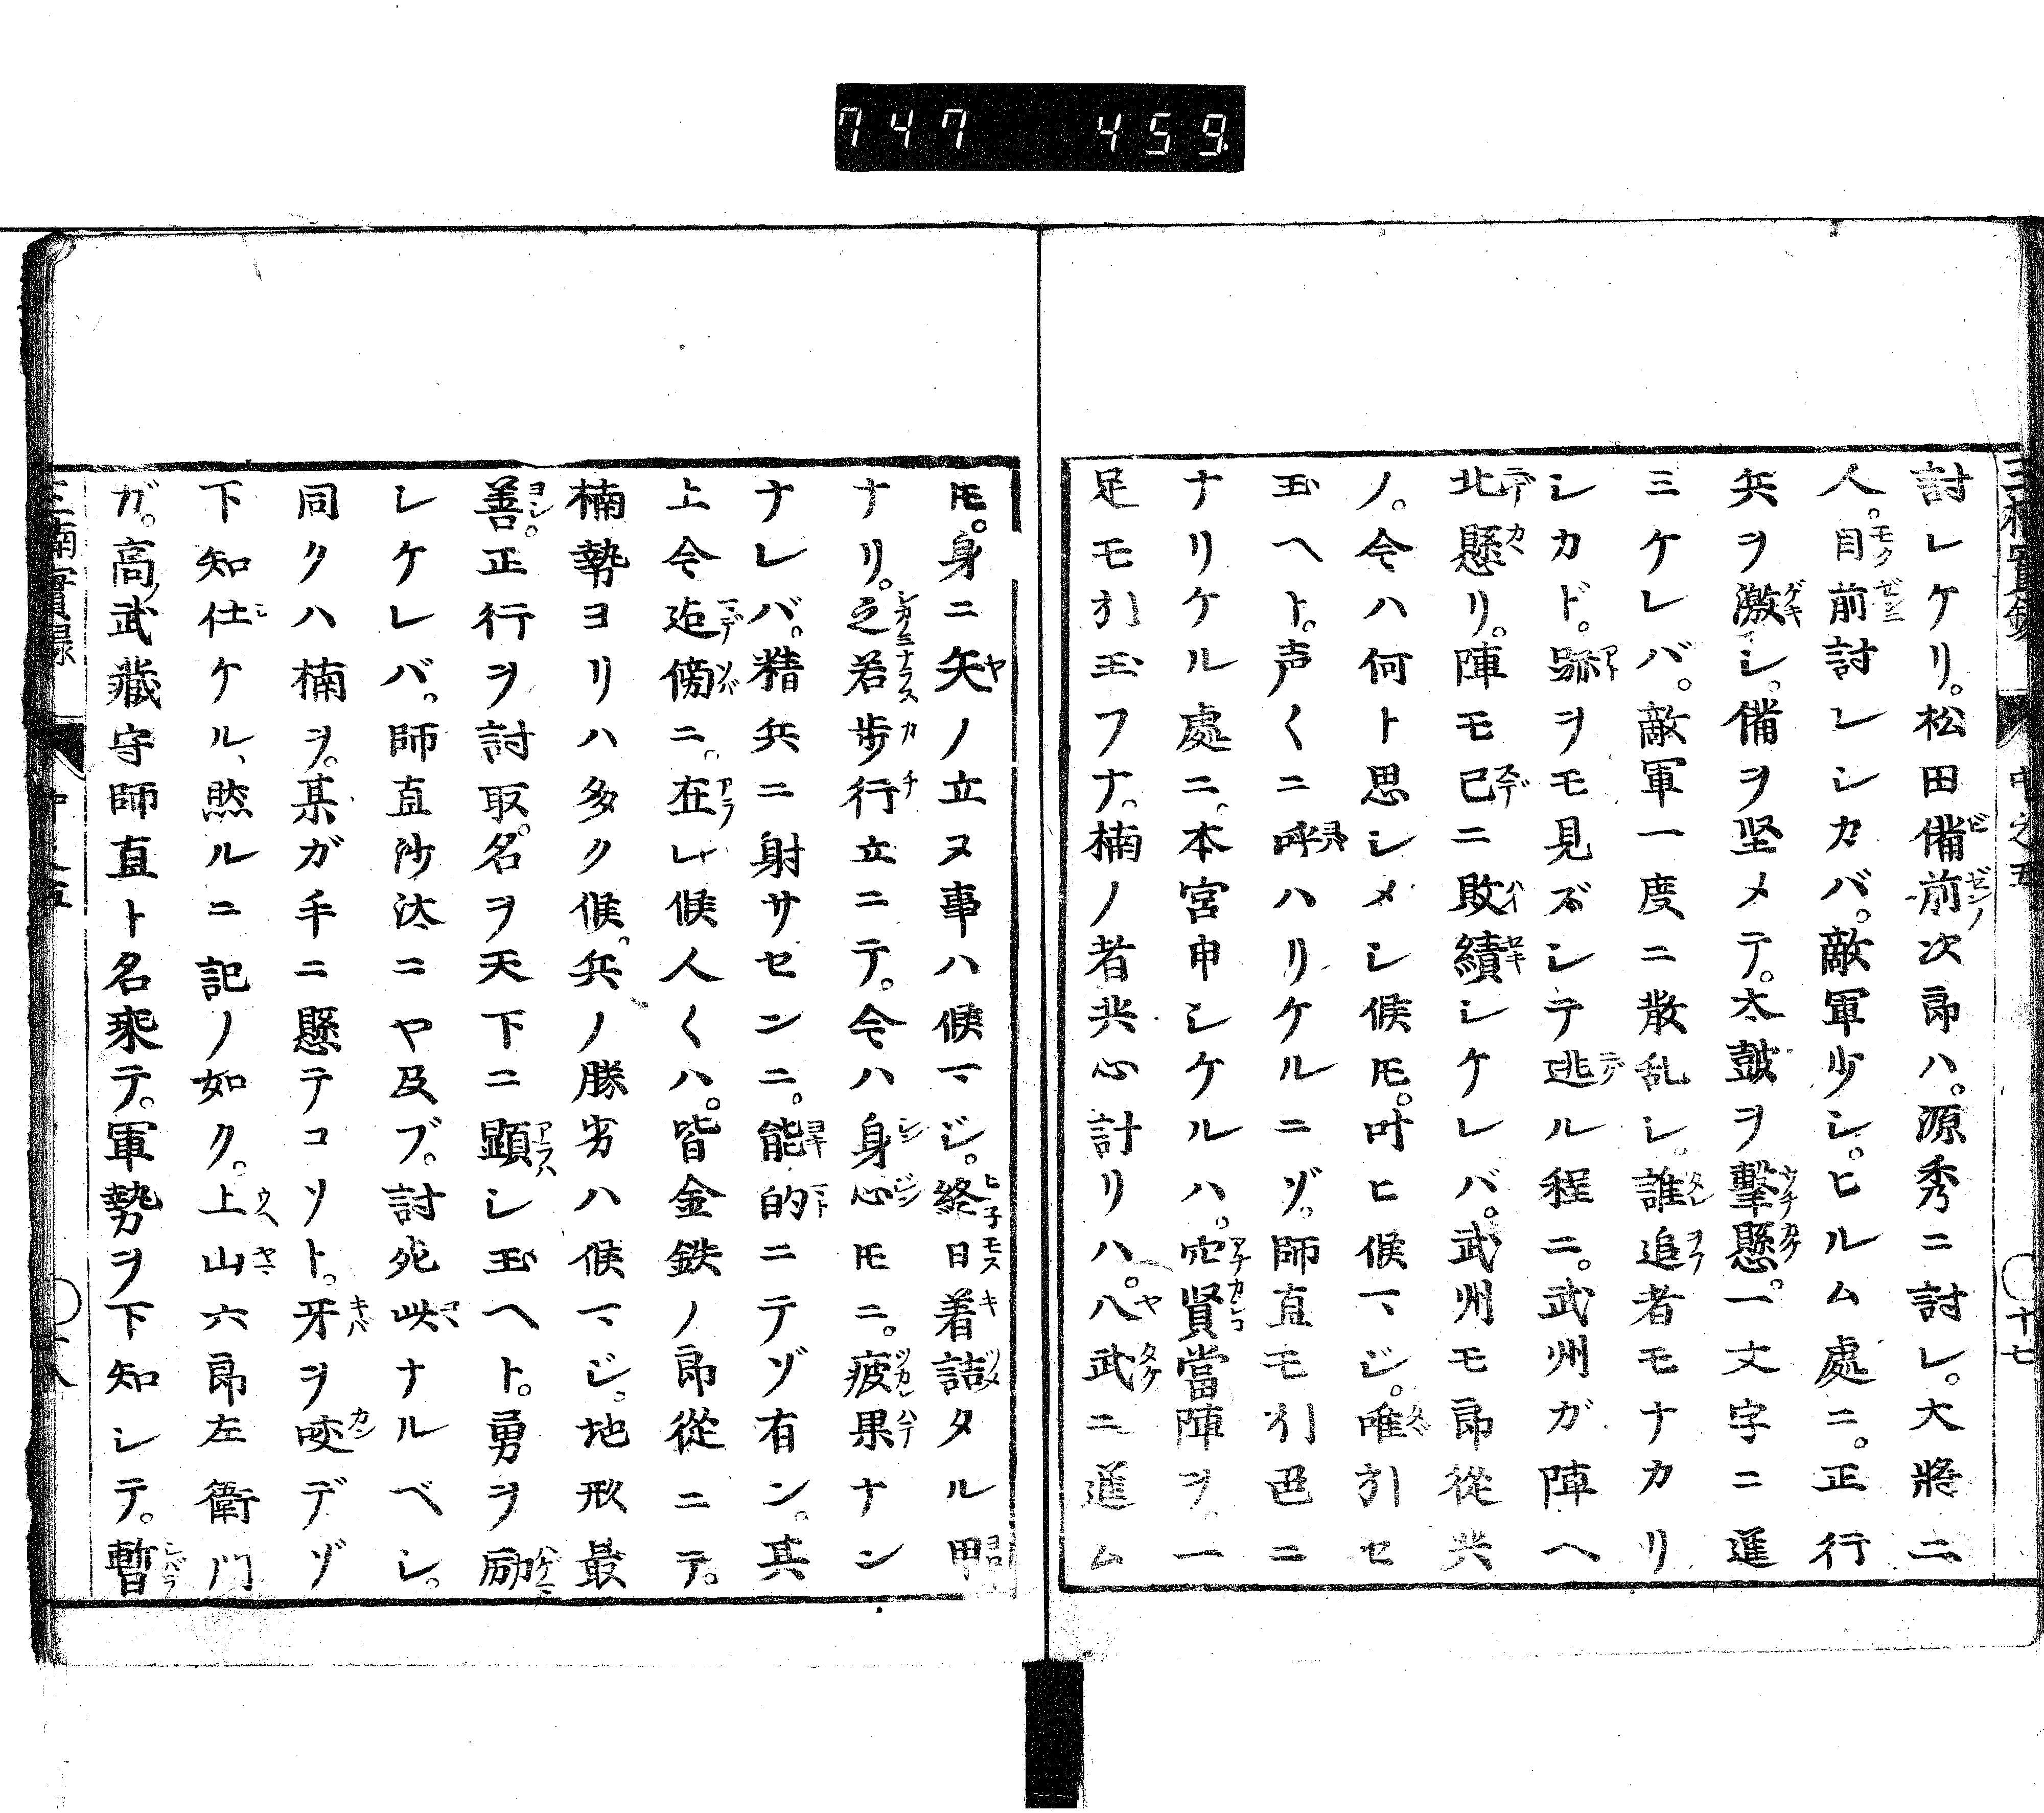 747 459
討レケリ。松田備前次郎ハ。源秀ニ討レ。大將二
人。目前討レシカバ。敵軍少シ。ヒルム處ニ。正行
兵ヲ激シ。備ヲ堅メテ。太鼓ヲ擊懸。一丈字ニ進
ミケレバ。敵軍一度ニ散乱シ。誰追者モナカリ
シカド。跡ヲモ見ズシテ逃ル程ニ。武州ガ陣ヘ
北懸リ。陣モ已ニ敗績シケレバ。武州モ郎從共
ノ。今ハ何ト思シメシ候𪜈。叶ヒ候マジ。唯引セ
玉ヘト。声〱ニ呼ハリケルニゾ。師直モ引色ニ
ナリケル處ニ。本宮申シケルハ。穴賢當陣ヲ。一
足モ引玉フナ。楠ノ者共心計リハ。八武ニ進ム
𪜈。身ニ矢ノ立ヌ事ハ候マジ。終日着詰タル甲
ナリ。之若歩行立ニテ。今ハ身心𪜈ニ。疲果ナン
ナレバ。精兵ニ射サセンニ。能的ニテゾ有ン。其
上今迄傍ニ。在レ候人〱ハ。皆金鉄ノ郎從ニテ。
楠勢ヨリハ多ク候。兵ノ勝劣ハ候マジ。地形最
善。正行ヲ討取。名ヲ天下ニ顕シ玉ヘト。勇ヲ励
レケレバ。師直沙汰ニヤ及ブ。討死此ナルベシ。
同クハ楠ヲ。某ガ手ニ懸テコソト。牙ヲ咬デゾ
下知仕ケル、然ルニ記ノ如ク。上山六郎左衛門
ガ。高武藏守師直ト名乘テ。軍勢ヲ下知シテ。暫